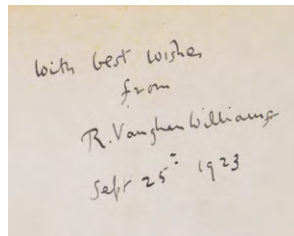 With best wishes
from
R. Vaughan Williams
Sept 25th 1923